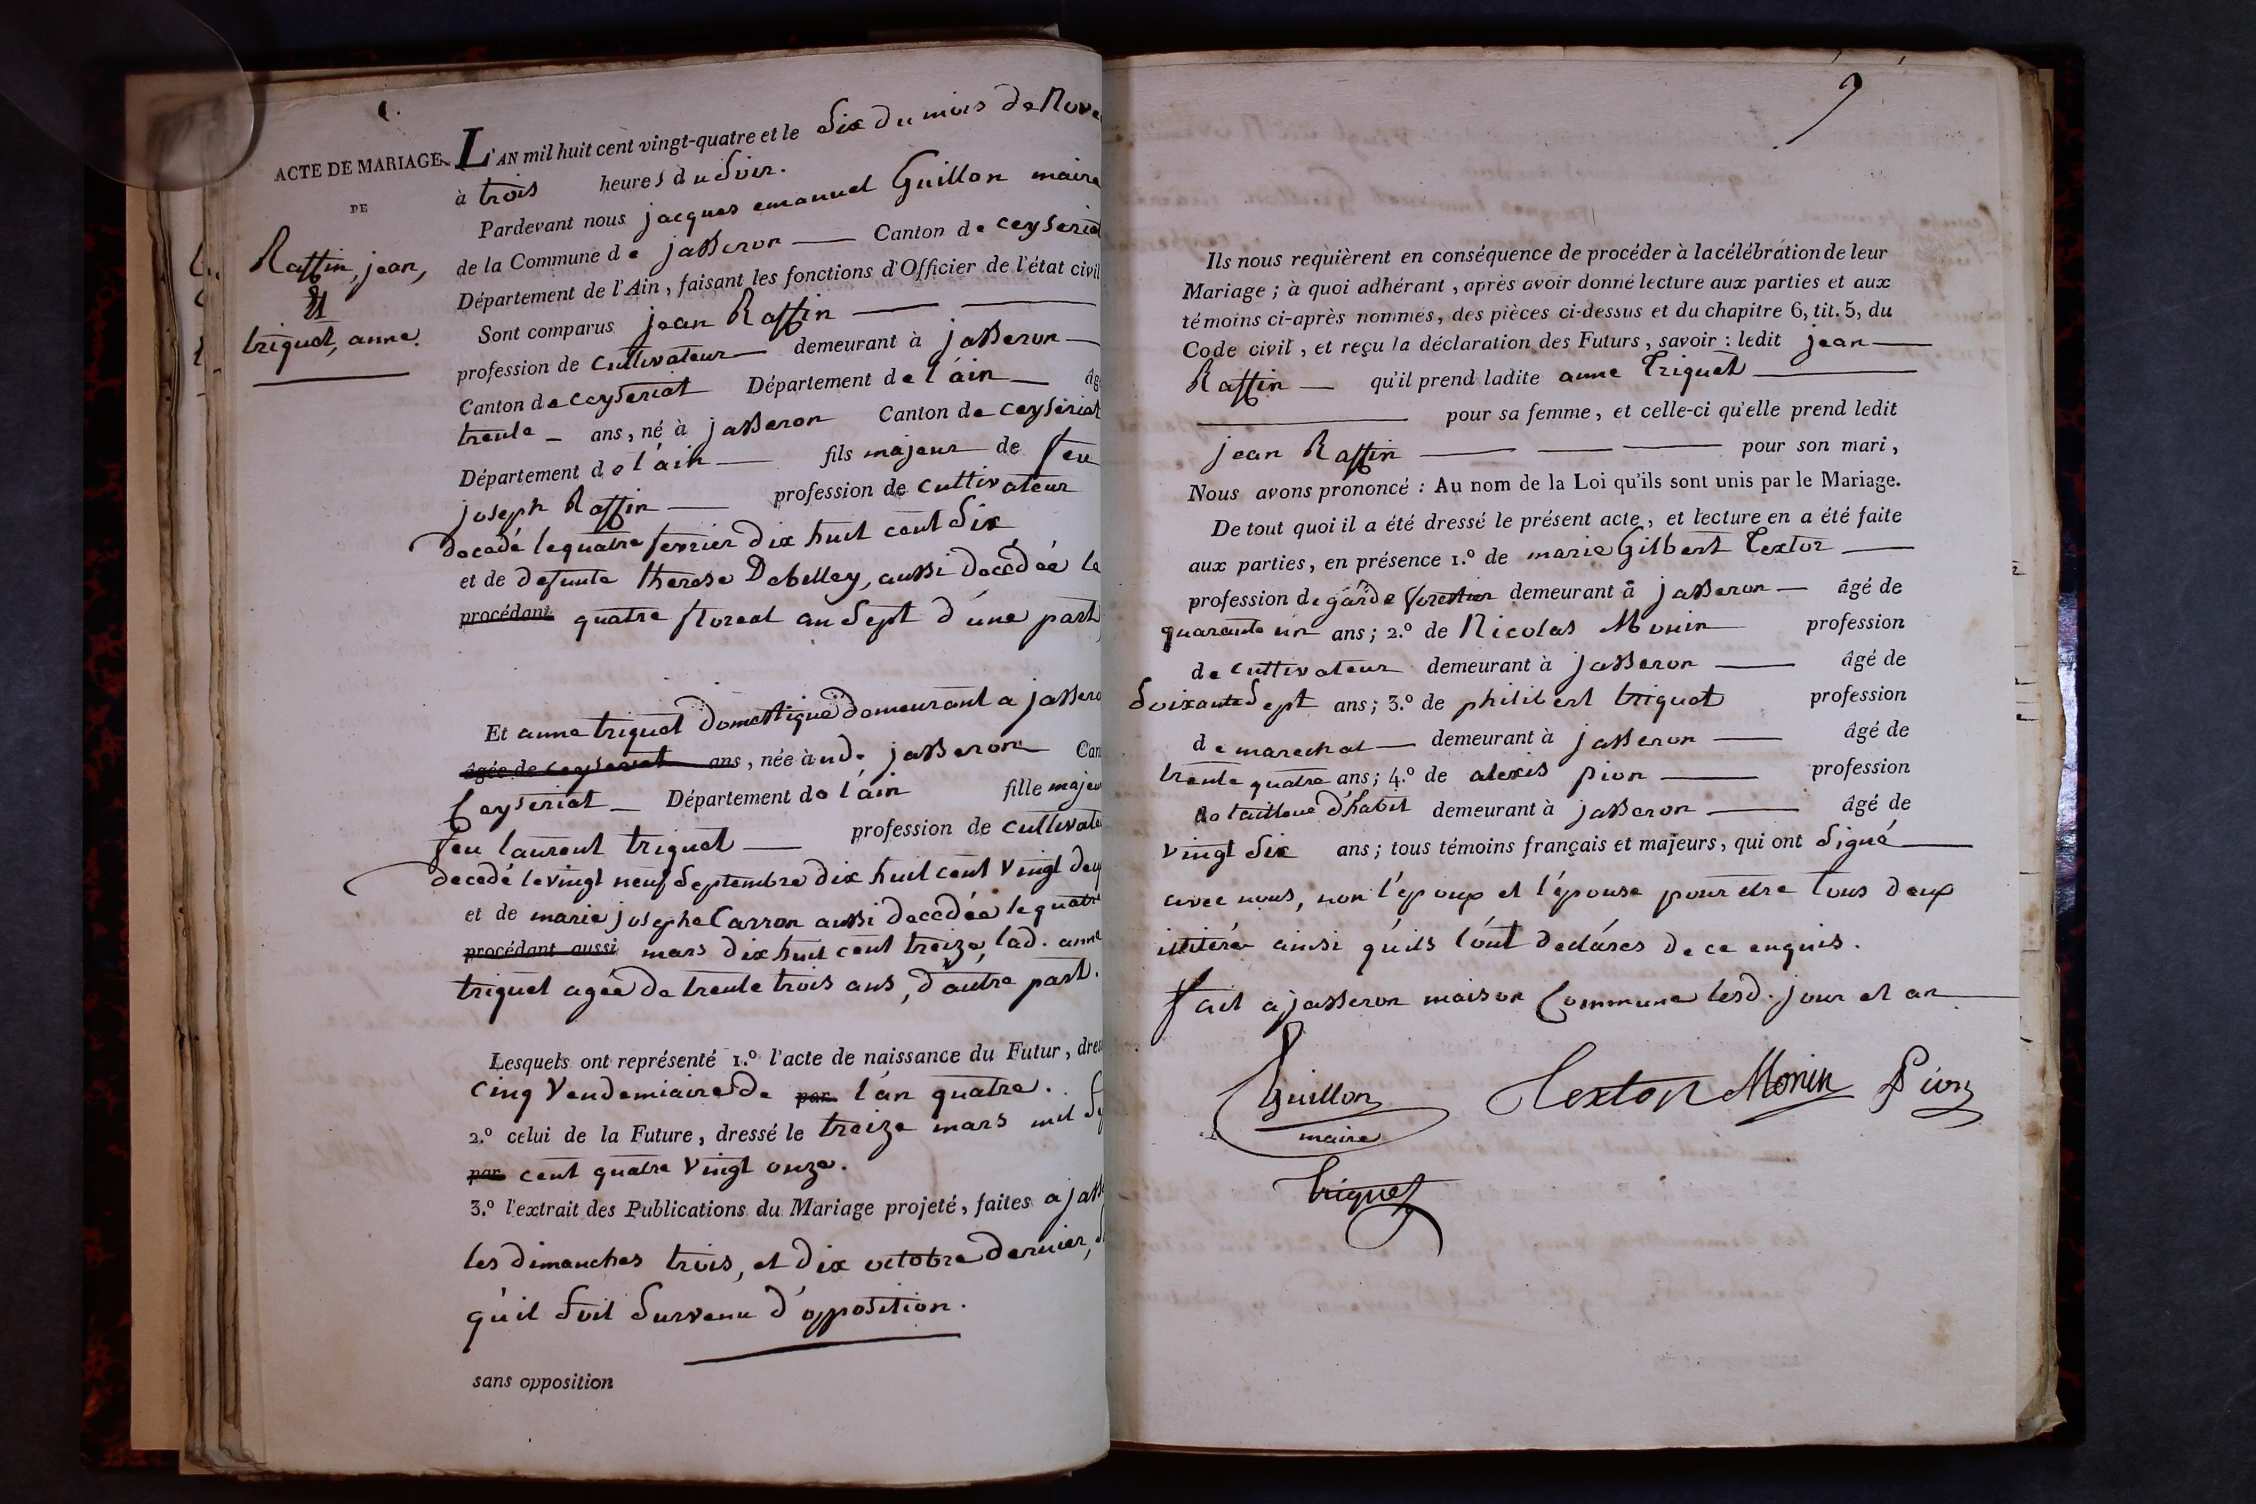 ACTE DE MARIAGE
DE
Raffin, jean,
&
triquet, anne.
L'AN mil huit cent vingt-quatre et le Six du mois de Nove
à trois heures du Soir.
Pardevant nous jacques emanuel Guillon maire
de la Commune de jasseron — Canton de ceyseriat
Département de l'Ain, faisant les fonctions d'Officier de l'état civil
Sont comparus jean Raffin — —
profession de Cultivateur — demeurant à jasseron —
Canton de ceyseriat Département de l'ain — âg
trente — ans, né à jasseron Canton de ceyseriat
Département de l'ain — fils majeur de feu
joseph Raffin — profession de cultivateur
decedé le quatre fevrier dix huit cent Six
et de defunte therese Debelley, aussi decédée le
procédant quatre floreal an Sept d'une part,
Et anne triquet domestique demeurant a jassero
âgée de ceyseriat ans, née à ud. jasseron Can
Ceyseriat — Département de l'ain fille majeu
feu laurent triquet — profession de cultivate
decedé le vingt neuf Septembre dix huit cent vingt deux
et de marie josephe Carron aussi decedée le quatre
procédant aussi mars dix huit cent treize, lad. anne
triquet agée de trente trois ans, d'autre part.
Lesquels ont représenté 1.º l'acte de naissance du Futur, dres
cinq Vendemiaire de par l'an quatre.
2.º celui de la Future, dressé le treize mars mil Se
par cent quatre vingt onze.
3.º l'extrait des Publications du Mariage projeté, faites a jass
les dimanches trois, et dix octobre dernier, S
qu'il soit Survenu d'opposition.
sans opposition
9
Ils nous requièrent en conséquence de procéder à la célébration de leur
Mariage; à quoi adhérant, après avoir donné lecture aux parties et aux
témoins ci-après nommés, des pièces ci-dessus et du chapitre 6, tit. 5, du
Code civil, et reçu la déclaration des Futurs, savoir: ledit jean —
Raffin — qu'il prend ladite anne Triquet —
— pour sa femme, et celle-ci qu'elle prend ledit
jean Raffin — — — pour son mari,
Nous avons prononcé: Au nom de la Loi qu'ils sont unis par le Mariage.
De tout quoi il a été dressé le présent acte, et lecture en a été faite
aux parties, en présence 1.º de marie Gilbert Textor —
profession de garde forestier demeurant à jasseron — âgé de
quarante un ans; 2.º de Nicolas Monin profession
de cultivateur demeurant à jasseron — âgé de
Soixante Sept ans; 3.º de philibert triquet profession
de marechal — demeurant à jasseron — âgé de
trente quatre ans; 4.º de alexis pion — profession
de tailleur d'habit demeurant à jasseron — âgé de
vingt Six ans; tous témoins français et majeurs, qui ont Signé —
avec nous, non l'époux et l'épouse pour être tous deux
illitéré ainsi qu'ils l'ont declarés de ce enquis.
fait a jasseron maison Commune lesd. jour et an —
Guillon
maire
Textor Monin Pion
triquet